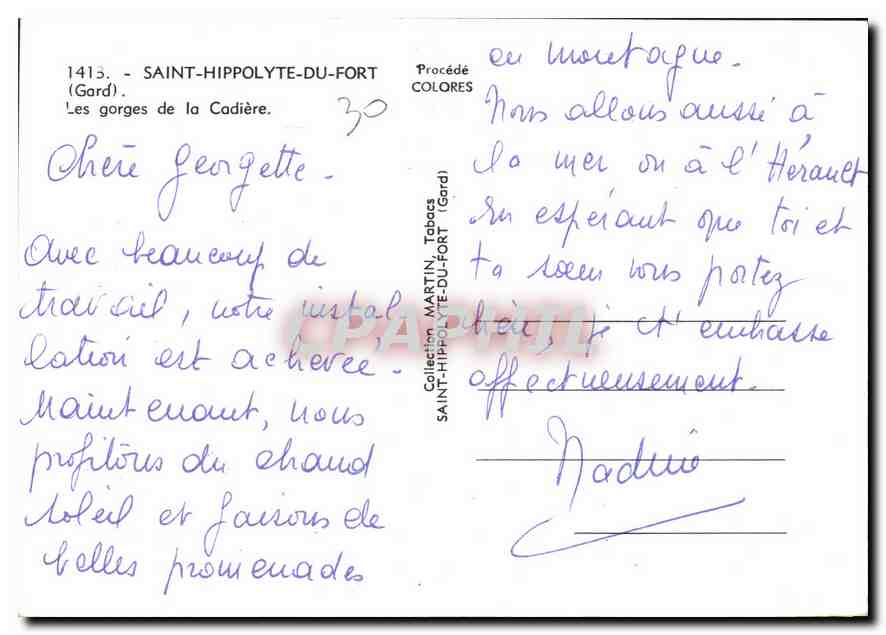 1413. - SAINT-HIPPOLYTE-DU-FORT
(Gard).
Les gorges de la Cadière.
30
Chère Georgette -
Avec beaucoup de
travail, notre instal
lation est achevée.
Maintenant, nous
profitons du chaud
soleil et faisons de
belles promenades
Procédé
COLORES
Collection MARTIN, Tabacs
SAINT-HIPPOLYTE-DU-FORT (Gard)
en montagne.
Nous allons aussi à
la mer ou à l'Hérault
En espérant que toi et
ta soeur vous portez
bien, je t'embrasse
affectueusement.
Nadine
CPAPHIL